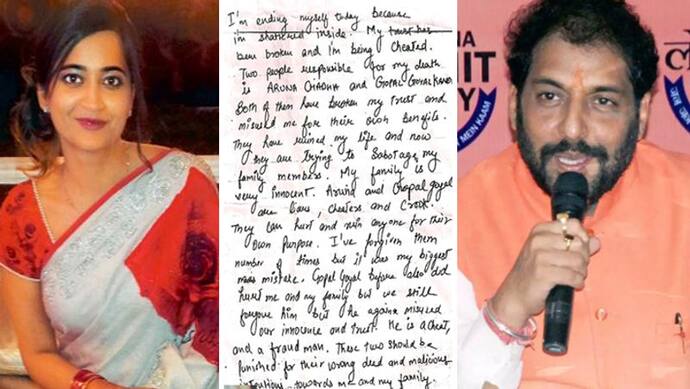 I'm ending myself today because
i'm shattered inside. My trust has
been broken and I'm being cheated.
Two people responsible for my death
is ARUNA CHADHA and GOPAL GOYAL KANDA.
Both of them have broken my trust and
misused me for their own benefits.
They have ruined my life and now
they are trying to Sabotage my
family members. My family is
very innocent. Aruna and Gopal goyal
are liars, cheaters and Crook.
They can hurt and ruin anyone for their
own purpose. I've forgiven them
number of times but it was my biggest
mistake. Gopal Goyal before also did
hurt me and my family but we still
forgave him but he again misused
our innocence and trust. He is a cheat,
and a fraud man. These two should be
punished for their wrong deed and malicious
intentions towards me and my family.
NA
HIT
Y
MEIN KAAM
लो